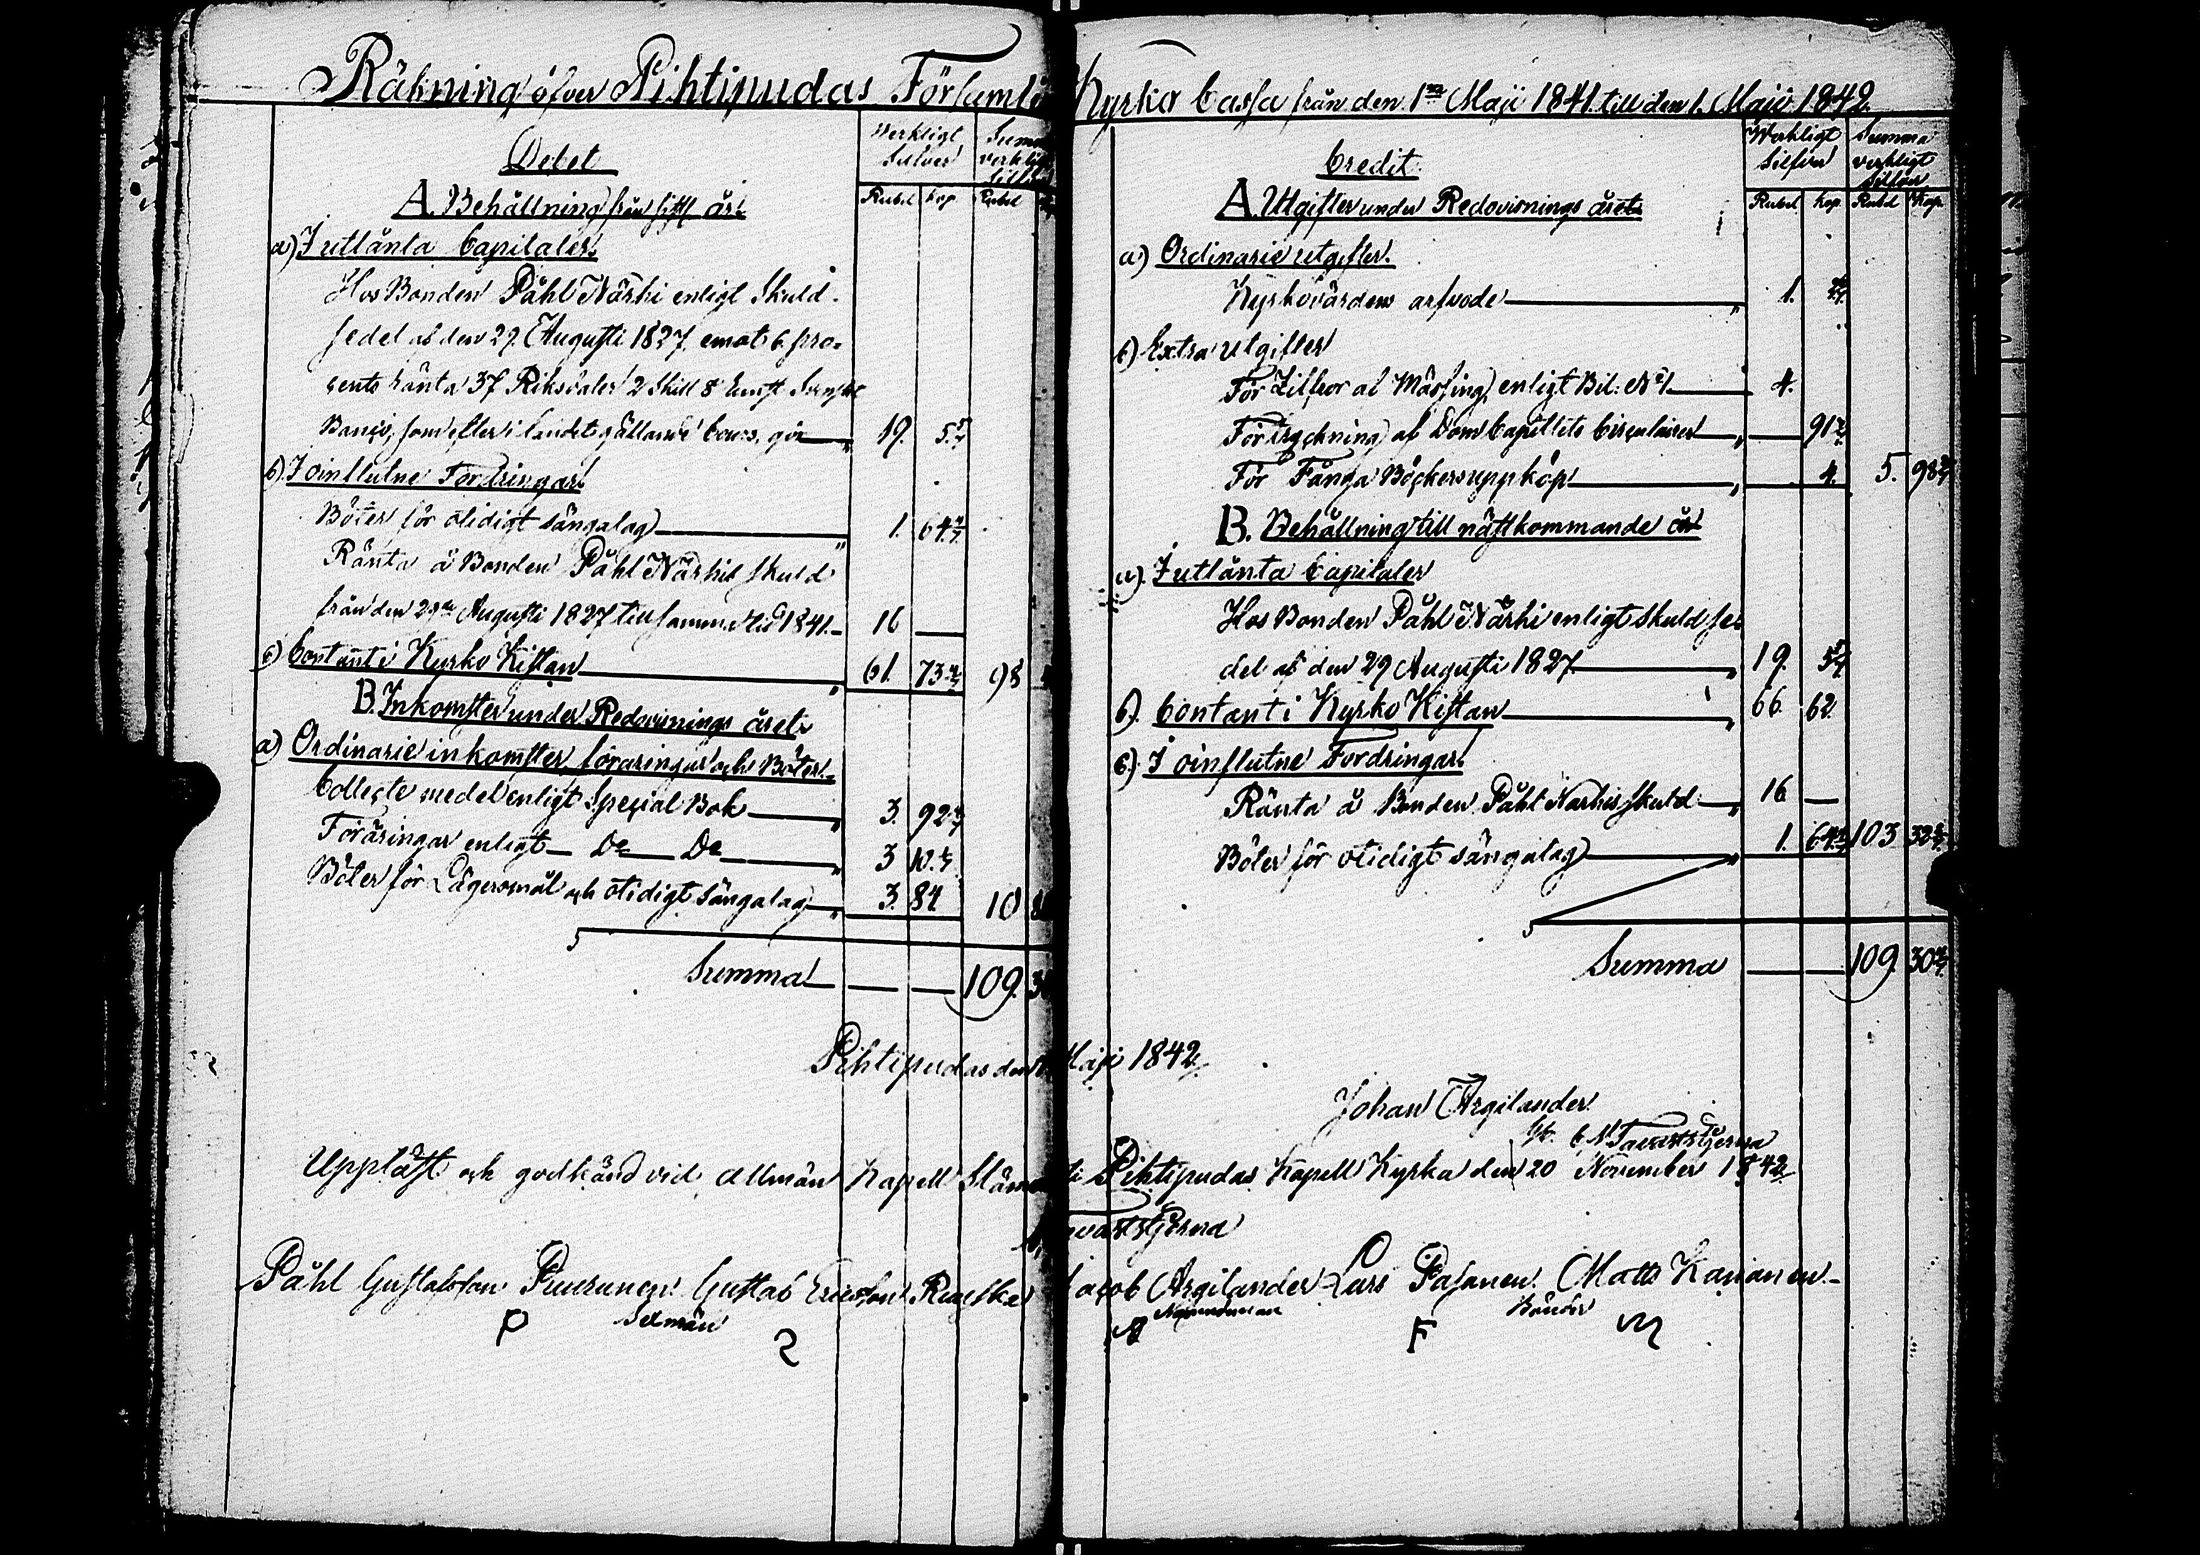 Räkning öfver Pihtipudas Församli
Debet
Werkligt Silfver
Rubel kop Rubel
A. Behållning från sistl. år.
a) I utlånta Capitaler.
Hos Bonden Påhl Närhi enligt Skuld-
sedel af den 29. Augusti 1827. emot 6. pro-
cents ränta 37 Riksdaler 2 Skill 8
Banco, som efter i landet gällande Cours, gör 19. 5 5/7
b) I oinflutne Fordringar.
Böter för otidigt sängalag 1. 64 4/7
Ränta å Bonden Påhl Närhis skuld
från den 29de Augusti 1827 till samma tid 1841. 16 —
c) Contant i Kyrko Kistan 61. 73 98
B. Inkomster under Redovisnings året.
a) Ordinarie inkomster föräringar och Böter.
Collecte medel enligt Special Bok 3. 92
Föräringar enligt — Do — Do 3 10
Böter för Lägersmål och otidigt sängalag 3. 84 10
Summa — — 109.
Kyrko Cassa från den 1sta Maji 1841. till den 1. Maji 1842.
Credit.
Werkligt Silfver Summa verkligt Silfver
Rubel kop Rubel kop
A. Utgifter under Redovisnings året
a) Ordinarie utgifter.
Kyrkovärdens arfvode 1. 
b) Extra utgifter
För af Mässing, enligt Bil. No 1 4.
För tryckning af Dom Capitlets Circulairer — 91
För Fånga Böckers uppköp 4. 5. 98
B. Behållning till nästkommande år
a). I utlånta Capitaler
Hos Bonden Påhl Närhi enligt skuld se-
del af den 29 Augusti 1827 19. 5 5/7
b). Contant i Kyrko Kistan 66 62
c.) I oinflutne Fordringar.
Ränta å Bonden Påhl Närhis skuld 16 —
Böter för otidigt sängalag 1. 64 4/7 103 32
Summa — — 109. 30
Pihtipudas den Maji 1842.
Johan Argilander
C. M. Tavaststjerna
Uppläst och godkänd vid allmän Kapell Stämma i Pihtipudas Kapell Kyrka den 20 November 1842
avaststjerna
Påhl Gustafsson Puurunen Gustaf Ericsson Ruuska Jacob Argilander Lars Pasanen Matts Kananen
Sexmän Nämndeman Bönder
P F M